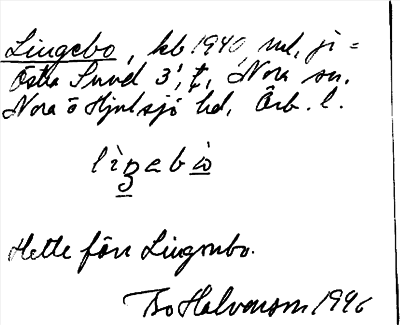 Lingebo, kb 1940, nul, ji=
Östra Smed 3', t, Nora sn.
Nora o Hjulsjö hd, Örb. l.
lìŋebò
Hette förr Lingonbo.
Bo Halvarson 1996